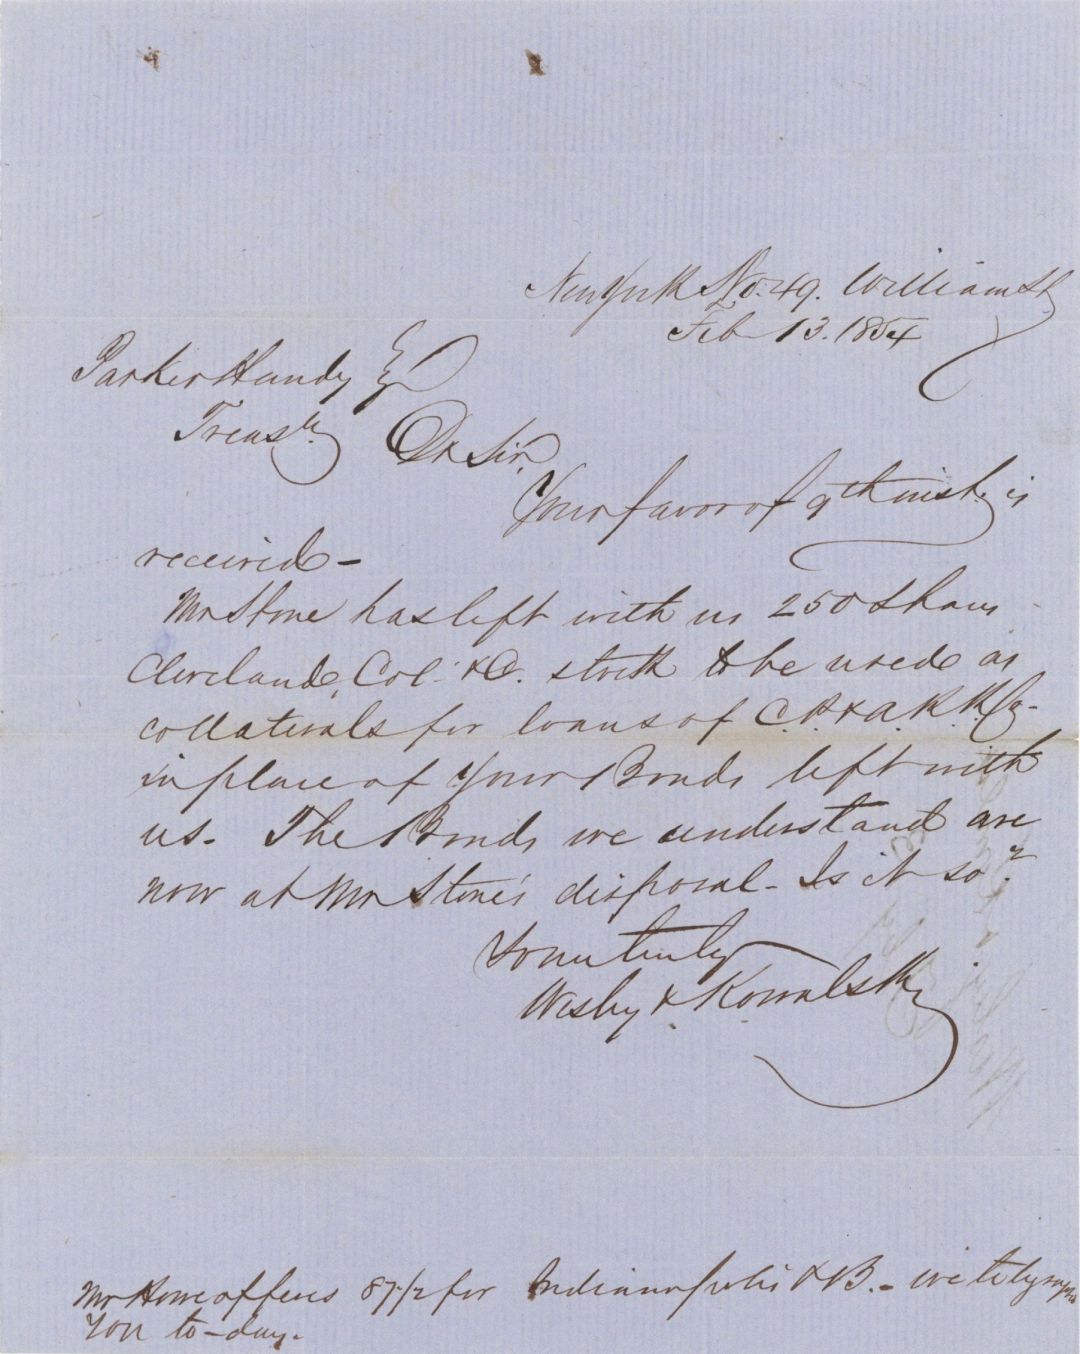 New York No. 49. William St.
Feb 13. 1854
Parker Handy Esq
Treasr.
Dr Sir,
Your favor of 9th inst. is
received -
Mr Stone has left with us 250 Shares
Cleveland, Col. & C. stock to be used as
collaterals for loans of C. P. & A. R. R. Co -
in place of your Bonds left with
us. The Bonds we understand are
now at Mr Stone's disposal - Is it so?
Yours truly
& Kowalsky
Mr Howe offers 87 1/2 for Indianapolis & B. - we telegraphed
You to-day.